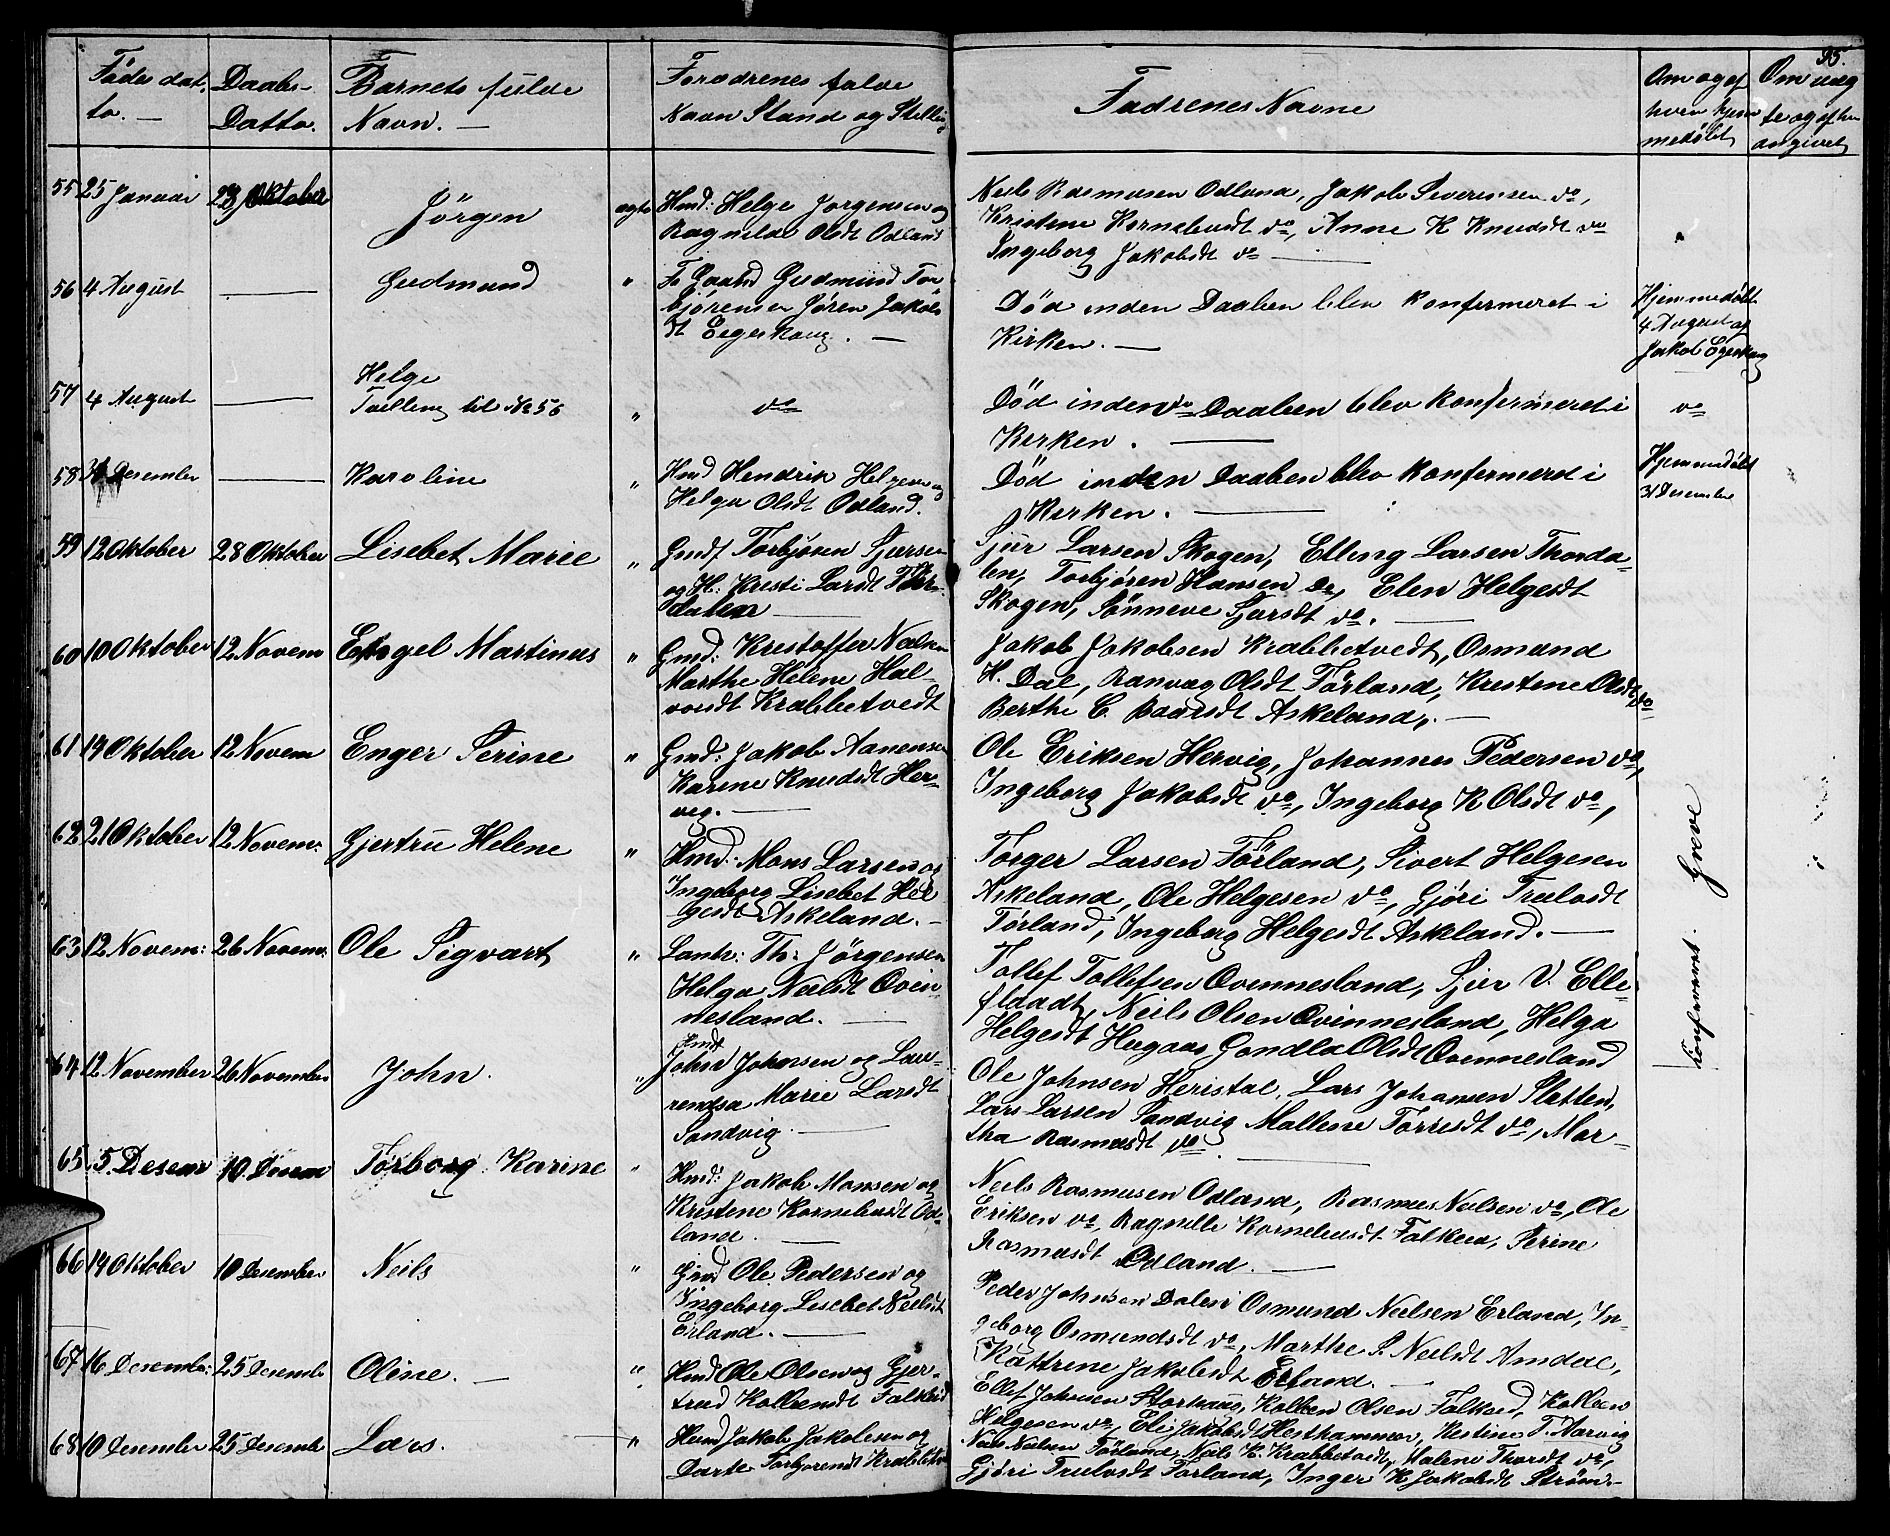 95.
Føde dat-
to. —
Daabs-
Datto.
Barnets fulde
Navn. —
Foræderenes fulde
Navn Stand og Stelling
Fadrenes Navne
Om og af
hvem hjem
medøbt
Om
te og af hv
angivet
55 25 Januar 28 Oktober
Jörgen
ægte
Hmd: Helge Jorgensen og
Ragnilde Olsdt Odland
Neils Rasmusen Odland, Jakob Severinsen do,
Kristene Korneliusdt do, Anne K Knudsdt do
Ingeborg Jakobsdt do —
56 4 August —
Gudmund
"
Gudmund Tor
bjørensen Jøren Jakobs
dt Eegeskoug. —
Död inden Daaben blev konfermeret i
Kirken. —
Hjemmedøbt
4 August af
Jakob Egeskoug
57 4 August —
Helge
Tvelling til No 56
"
do
Död inden Daaben blev konfermeret i
Kirken. —
do
58 31 Desember —
Karoline
"
Hmd Hendrik Helgesen og
Helga Olsdt Odland.
Död inden Daaben blev konfermered i
Kirken. —
Hjemmedøbt
31 Desember
59 12 Oktober 28 Oktober Lisebet Marie
"
Gmdf Torbjøren Sjursen
og H: Kresti Larsdt Thor-
dalen —
Sjur Larsen Skogen, Elling Larsen Thorda-
len, Torbjøren Hansen do, Elen Helgesdt
Skogen, Sönneve Sjursdt do. —
60 10 Oktober 12 Novem Engel Martinus
"
Gmd: Krestoffer Nelsen
Marthe Helene Hal-
vorsdt Krabbetvedt
Jakob Jakobsen Krabbetvedt, Osmund
H. Dal, Ranvag Olsdt Förland, Krestene Olsdt do
Berthe C. Baarsdt Askeland, —
61 19 Oktober 12 Novem Enger Serine
"
Gmd: Jakob Aanensen
Karene Knudsdt Her-
vig. —
Ole Eriksen Hervig, Johannes Pedersen do,
Ingeborg Jakobsdt do, Ingeborg K Olsdt do,
62 21 Oktober 12 Novem: Gjertru Helene
"
Hmd: Mons Larsen og
Ingeborg Lisebet Hel
gesdt Askeland. —
Torger Larsen Förland, Sivert Helgesen
Askeland, Ole Helgesen do, Gjöri Truelsdt
Förland, Ingeborg Helgesdt Askland. —
63 12 Novem: 26 Novem: Ole Sigvart
"
Lanh: Th: Jörgensen
Helga Neilsdt Qvin-
nesland. —
Tollef Tollefsen Qvennesland, Sjur V. Elle-
flaadt, Neils Olsen Qvinnesland, Helga
Helgesdt Hugaas Gondla Olsdt Qvennesland
64 12 November 26 November
John.
"
Hmd
John Johnsen og Lau-
rendsa Marie Larsdt
Sandvig. —
Ole Johnsen Heristal, Lars Johansen Sletten,
Lars Larsen Sandvig Mallene Torresdt do, Mar-
tha Rasmusdt do —
65 5 Desem 10 Desem Torborg Karine
"
Hmd: Jakob Monsen og
Kristene Korneliusdt Od-
land. —
Neils Rasmusen Odland, Rasmus Nelsen do, Ole
Eriksen do, Ragnelle Korneliusdt Falkeid, Serine
Rasmusdt Odland. —
66 19 Oktober 10 Desember
Neils
"
Gmd Ole Pedersen og
Ingeborg Lisebet Neilsdt
Erland. —
Peder Johnsen Dalen Osmund Neilsen Erland, In-
geborg Osmundsdt do, Marthe S. Neilsdt Amdal,
Kattrine Jakobsdt Erland. —
67 16 Desemb: 25 Desemb
Oline. —
"
Hmd Ole Olsen og Gjer-
trud Kolbensdt Falkeid
Ellef Johnsen Storhaug, Kolben Olsen Falkeid, Kolben
Helgesen do, Eli Jakobsdt Hesthammer, Kestine T. Aarvig
68 10 Desember 25 Desemb
Lars.
"
Hmd Jakob Jakobsen og
Darte Torbjorensdt Krabbetv
Neils Nelsen Förland, Neils K. Krabbetvedt, Malene Thorsdt do,
Gjöri Truelsdt Förland, Inger K Jakobsdt Ström-
konfermeret. Greve